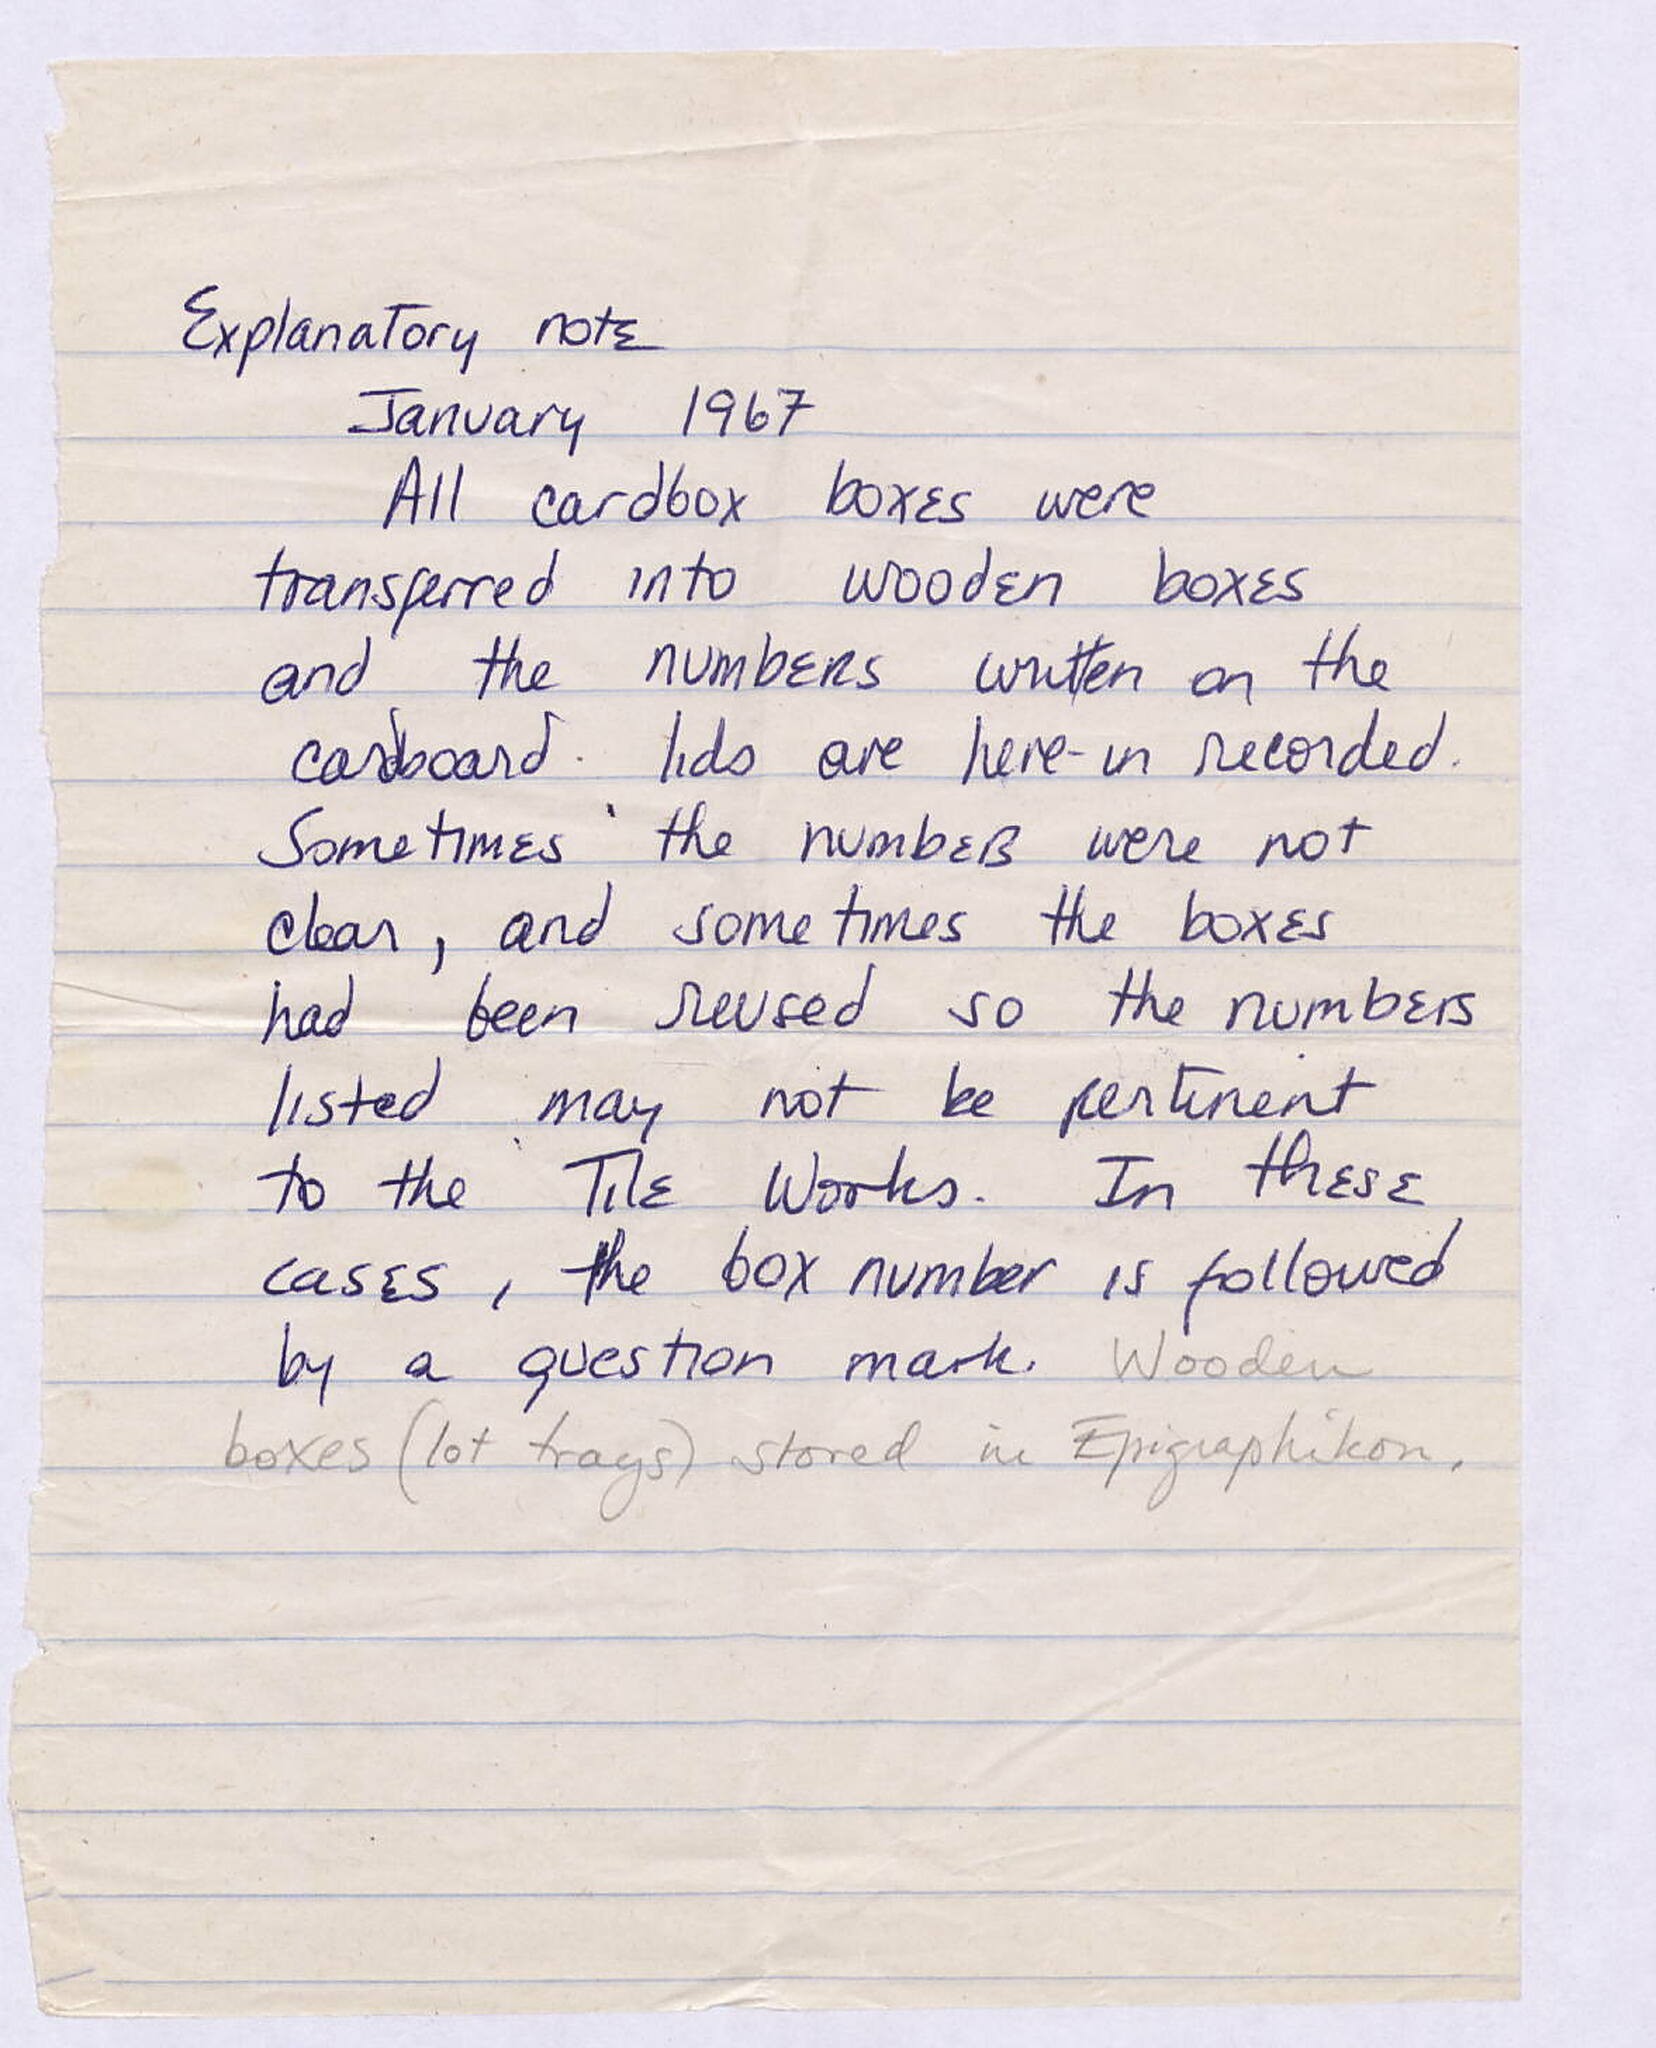 Explanatory note
January 1967
All cardbox boxes were
transferred into wooden boxes
and the numbers written on the
cardboard. lids are here-in recorded.
Sometimes the numbers were not
clear, and sometimes the boxes
had been reused so the numbers
listed may not be pertinent
to the Tile Works. In these
cases, the box number is followed
by a question mark. Wooden
boxes (lot trays) stored in Epigraphikon.